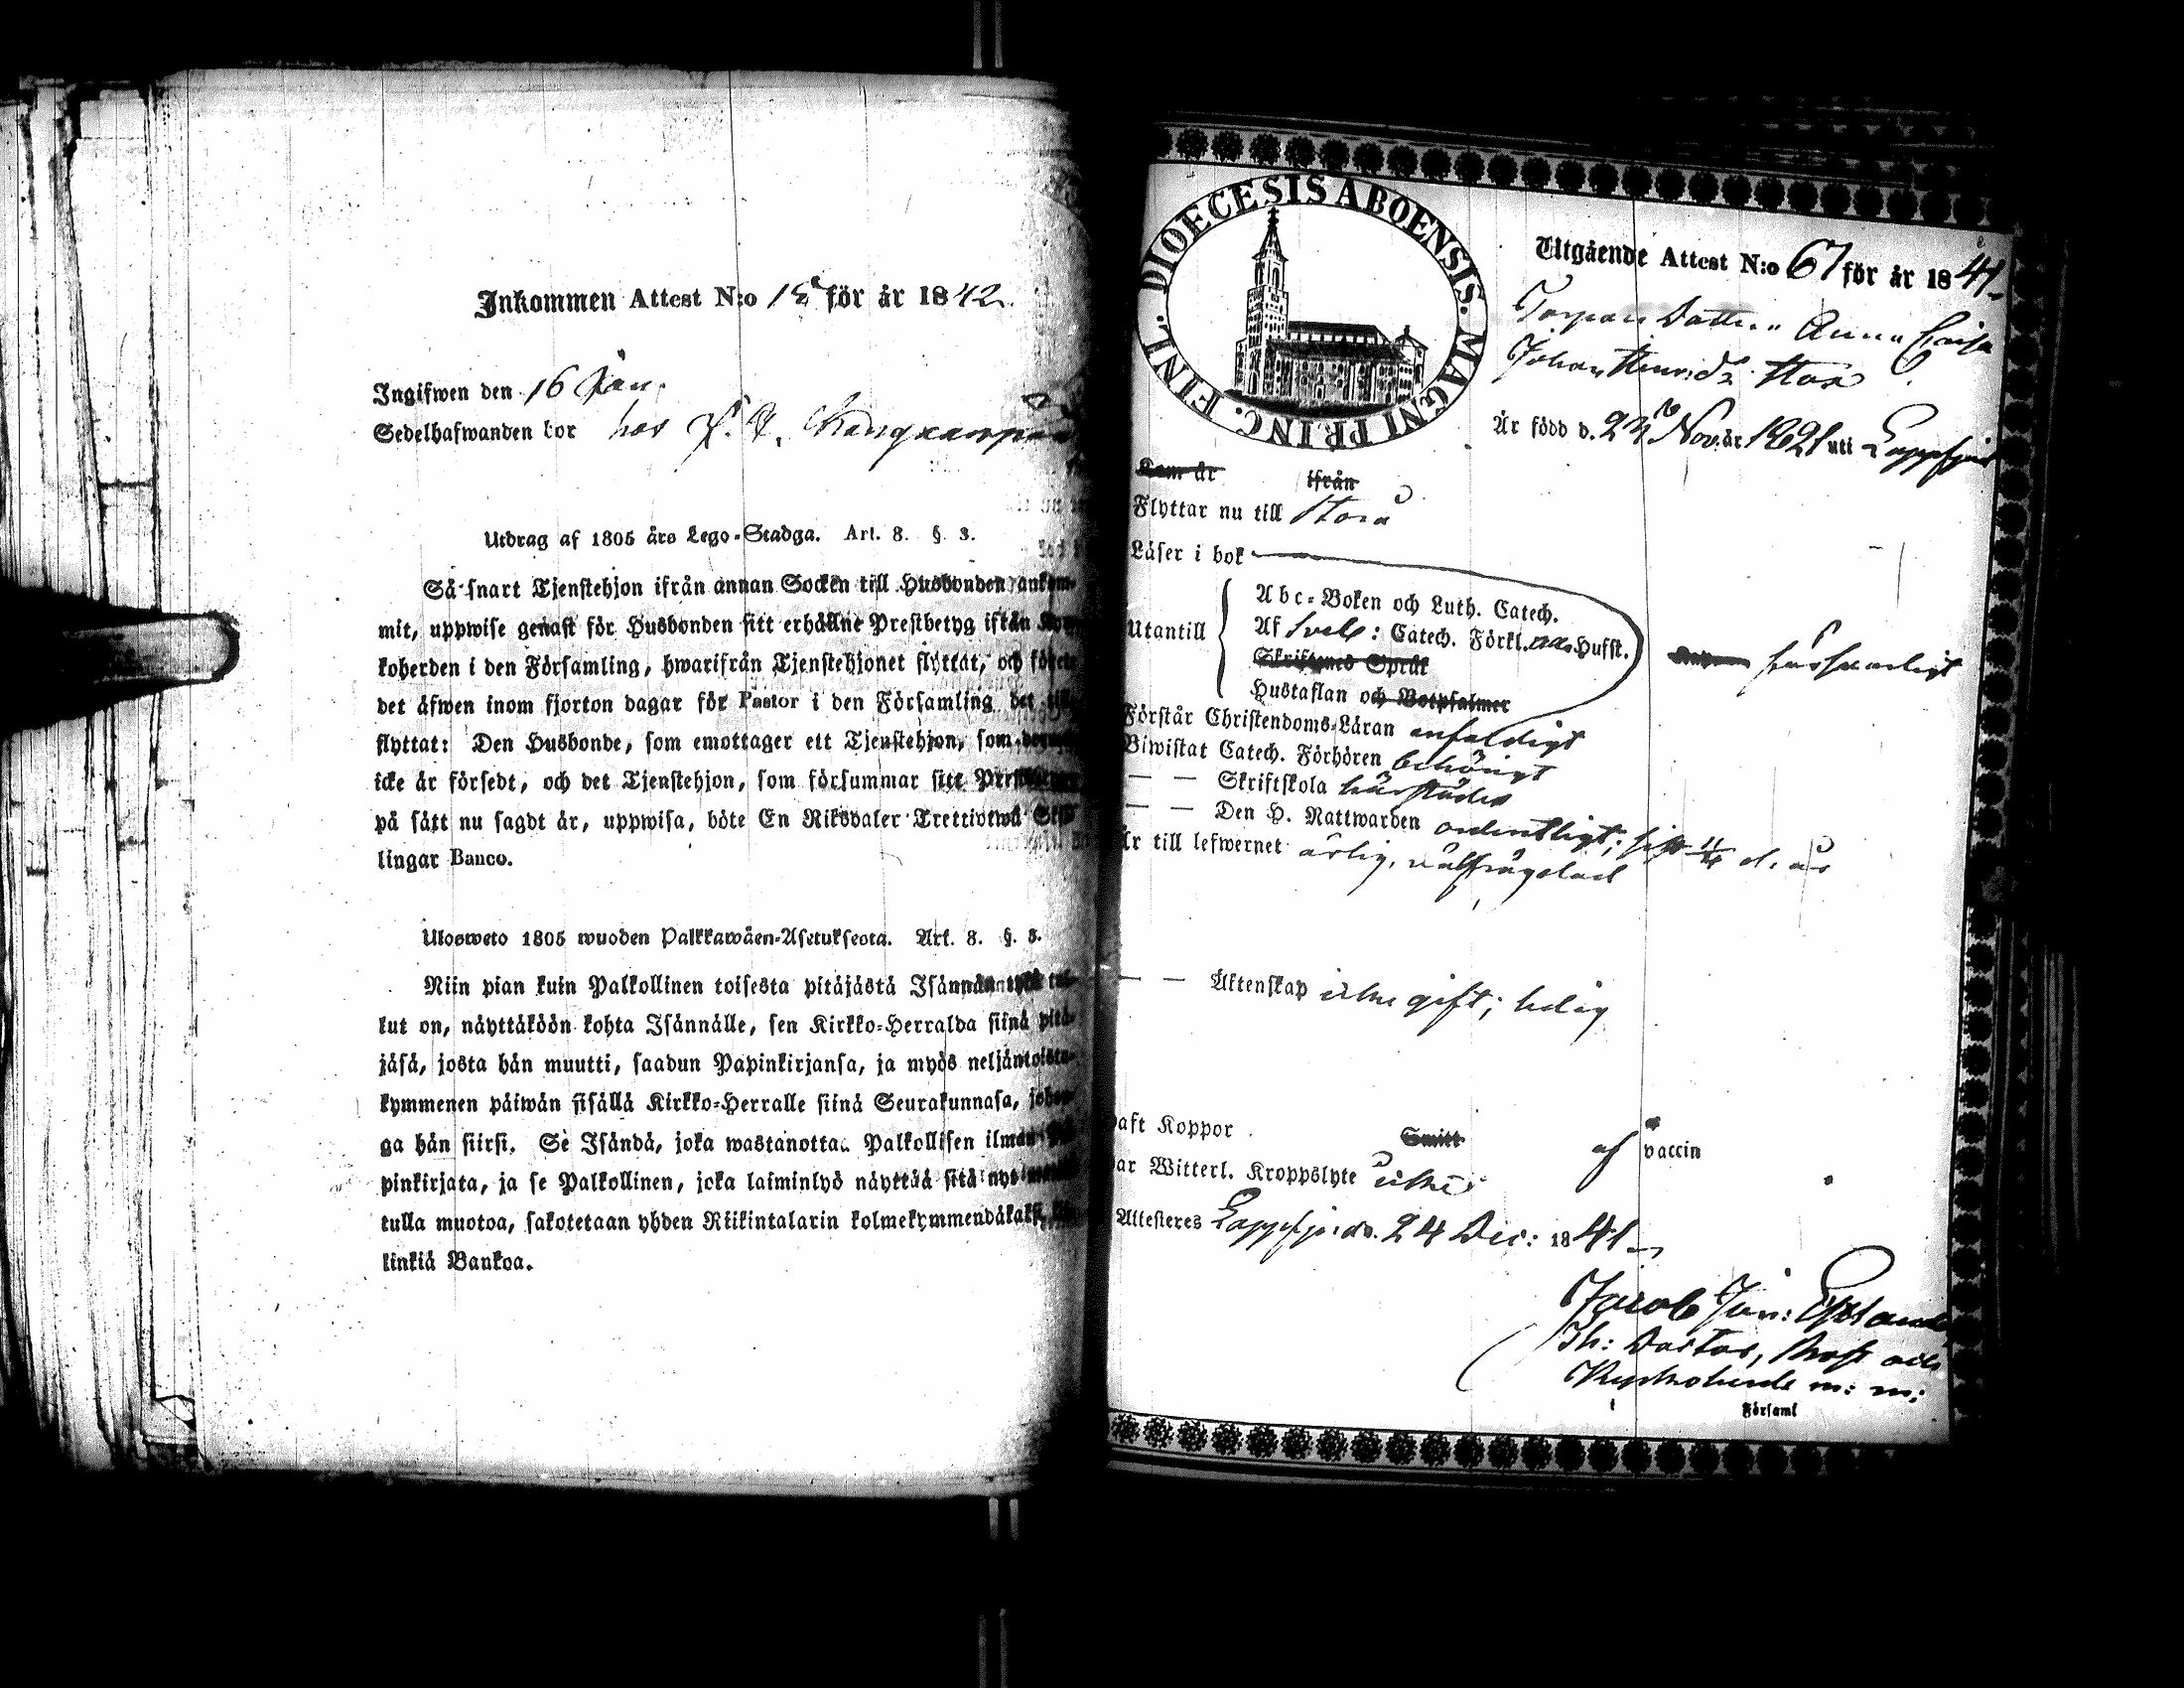 Inkommen Attest N:o 15 för år 1842.
Ingifwen den 16 Jan.
Sedelhafwanden bor hos
Utdrag af 1805 års Lego-Stadga. Art. 8. §. 3.
Så snart Tjenstehjon ifrån annan Socken till Husbonden ankom-
mit, uppwise genast för Husbonden sitt erhållne Prestbetyg ifrån
koherden i den Församling, hwarifrån Tjenstehjonet flyttat, och
det äfwen inom fjorton dagar för Pastor i den Församling det
flyttat: Den Husbonde, som emottager ett Tjenstehjon, som
icke är försedt, och det Tjenstehjon, som försummar sitt
på sätt nu sagdt är, uppwisa, böte En Riksdaler Trettiotwå
lingar Banco.
Ulosweto 1805 wuoden Palkkawäen-Asetuksesta. Art. 8. §. 3.
Niin pian kuin Palkollinen toisesta pitäjästä Isännän tykö
lut on, näyttäköön kohta Isännälle, sen Kirkko-Herralda siinä pitä-
jäsä, josta hän muutti, saadun Papinkirjansa, ja myös neljäntoista-
kymmenen päiwän sisällä Kirkko-Herralle siinä Seurakunnasa,
ga hän siirsi. Se Isändä, joka wastanottaa Palkollisen ilman
pinkirjata, ja se Palkollinen, joka laiminlyö näyttää sitä
tulla muotoa, sakotetaan yhden Riikintalarin kolmekymmendäkaksi
linkiä Bankoa.
DIOECESIS ABOENSIS. MAGNI PRINC. FINL.
Utgående Attest N:o 67 för år 1841
Anna Caisa
Är född d. 22 Nov. år 1821 uti Lappfjerd
Kom år ifrån
Flyttar nu till Storå
Läser i bok
Utantill
Abc-Boken och Luth. Catech.
Af Sveb: Catech. Förkl. Hufst.
Skriftenes Språk
Hustaflan och Botpsalmer
försvarligt
Förstår Christendoms-Läran enfaldigt
Biwistat Catech. Förhören behörigt
— — Skriftskola härstädes
— — Den H. Nattwarden ordentligt; sist 11/4 d. år
Är till lefwernet ärlig, välfrägdad
— — Äktenskap icke gift; ledig
Haft Koppor Smitt af vaccin
Har Witterl. Kroppslyte icke
Attesteres Lappfjerd. 24 Dec: 1841
Jacob
Kyrkoherde m: m:
Församl